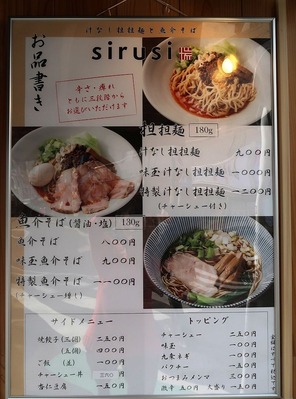 汁なし担担麺と魚介そば
sirusi
お品書き
辛さ・痺れ
ともに三段階から
お選びいただけます
担担麺 180g
汁なし担担麺 九〇〇円
味玉汁なし担担麺 一〇〇〇円
特製汁なし担担麺 一二〇〇円
(チャーシュー付き)
魚介そば(醤油・塩) 130g
魚介そば 八〇〇円
味玉魚介そば 九〇〇円
特製魚介そば 一一〇〇円
(チャーシュー増し)
サイドメニュー
焼餃子(三個) 二五〇円
(五個) 四〇〇円
ご飯 (並) 一五〇円
チャーシュー丼
杏仁豆腐 一五〇円
トッピング
チャーシュー 二五〇円
味玉 一〇〇円
九条ネギ 一〇〇円
パクチー 一五〇円
おつまみメンマ 三〇〇円
激辛 五〇円 大盛り 一五〇円